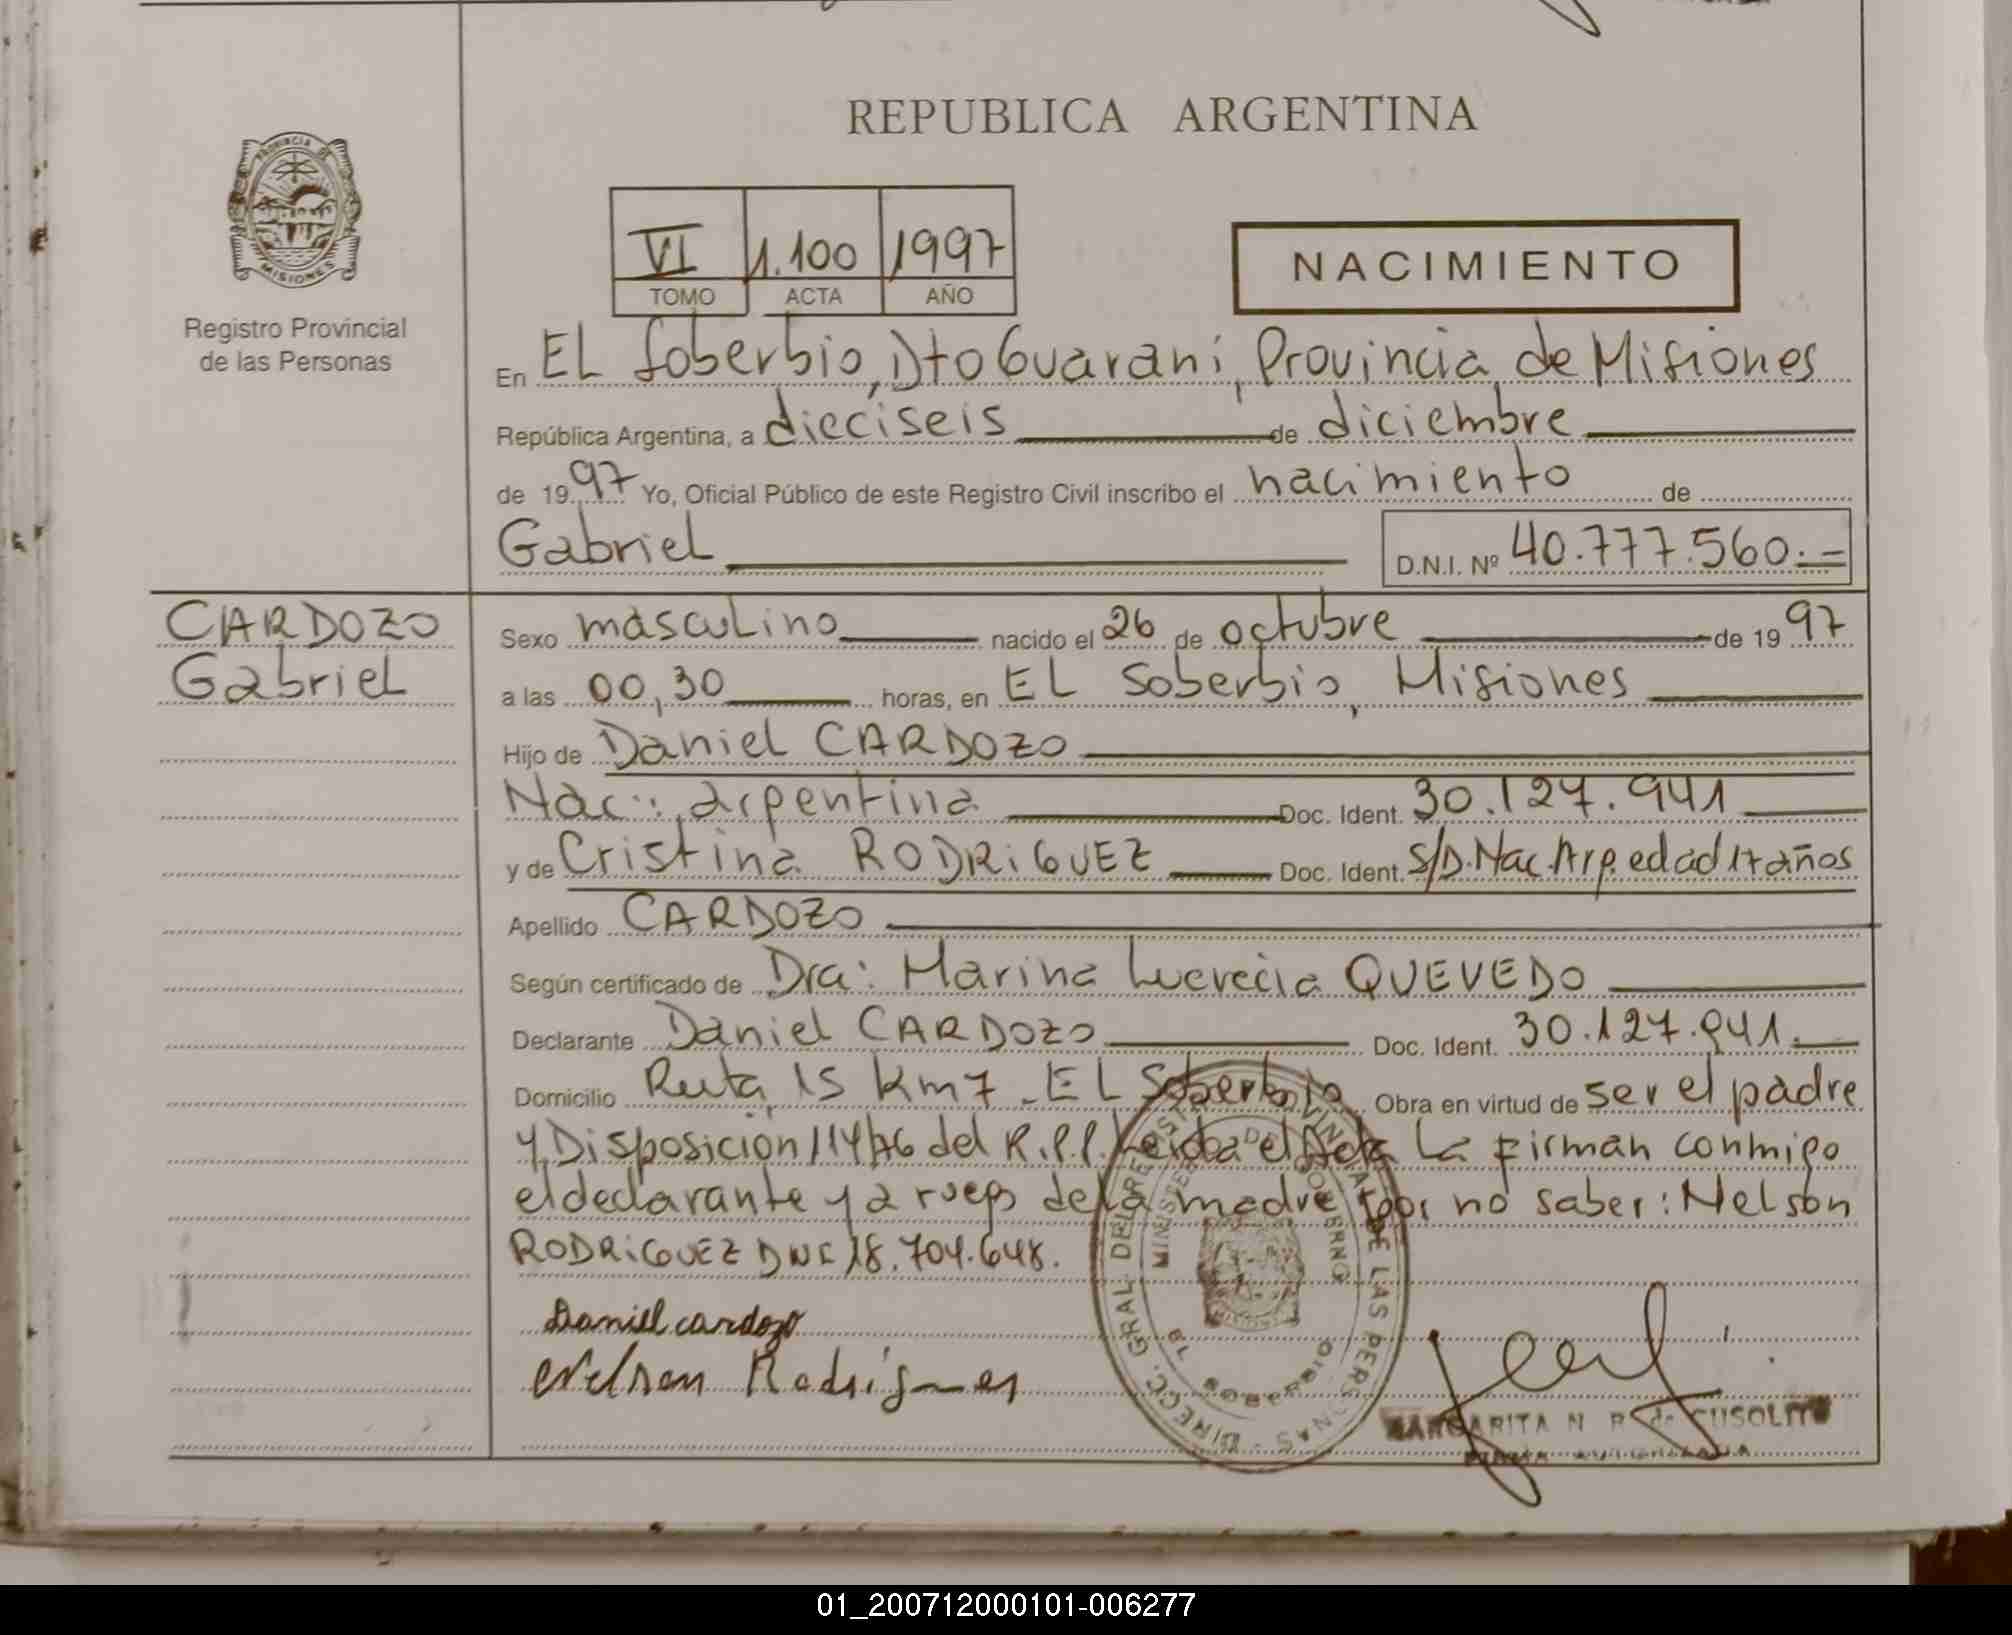 REPUBLICA ARGENTINA
PROVINCIA DE
MISIONES
Registro Provincial
de las Personas
VI 1.100 1997
TOMO ACTA AÑO
NACIMIENTO
En EL Soberbio, Dto Guaraní, Provincia de Misiones
República Argentina, a dieciseis de diciembre
de 1997 Yo, Oficial Público de este Registro Civil inscribo el nacimiento de
Gabriel D.N.I. Nº 40.777.560.=
CARDOZO
Gabriel
Sexo masculino nacido el 26 de octubre de 1997
a las 00,30 horas, en EL Soberbio, Misiones
Hijo de Daniel CARDOZO
Nac: argentina Doc. Ident. 30.127.941
y de Cristina RODRIGUEZ Doc. Ident. S/D. Nac. Arg. edad 17 años
Apellido CARDOZO
Según certificado de Dra: Marina Lucrecia QUEVEDO
Declarante Daniel CARDOZO Doc. Ident. 30.127.941.
Domicilio Ruta 15 Km 7 - EL Soberbio Obra en virtud de ser el padre
y Disposición 114/76 del R.P.P. Leida el Acta La firman conmigo
el declarante y a ruego de la madre por no saber: Nelson
RODRIGUEZ DNI 18.704.648.
Daniel cardozo
Nelson Rodrígues
DIRECC. GRAL DEL REGIST DE LAS PERSONAS
MINISTERIO DE GOBIERNO
EL SOBERBIO
MARGARITA N R de CUSOLITO
01_200712000101-006277